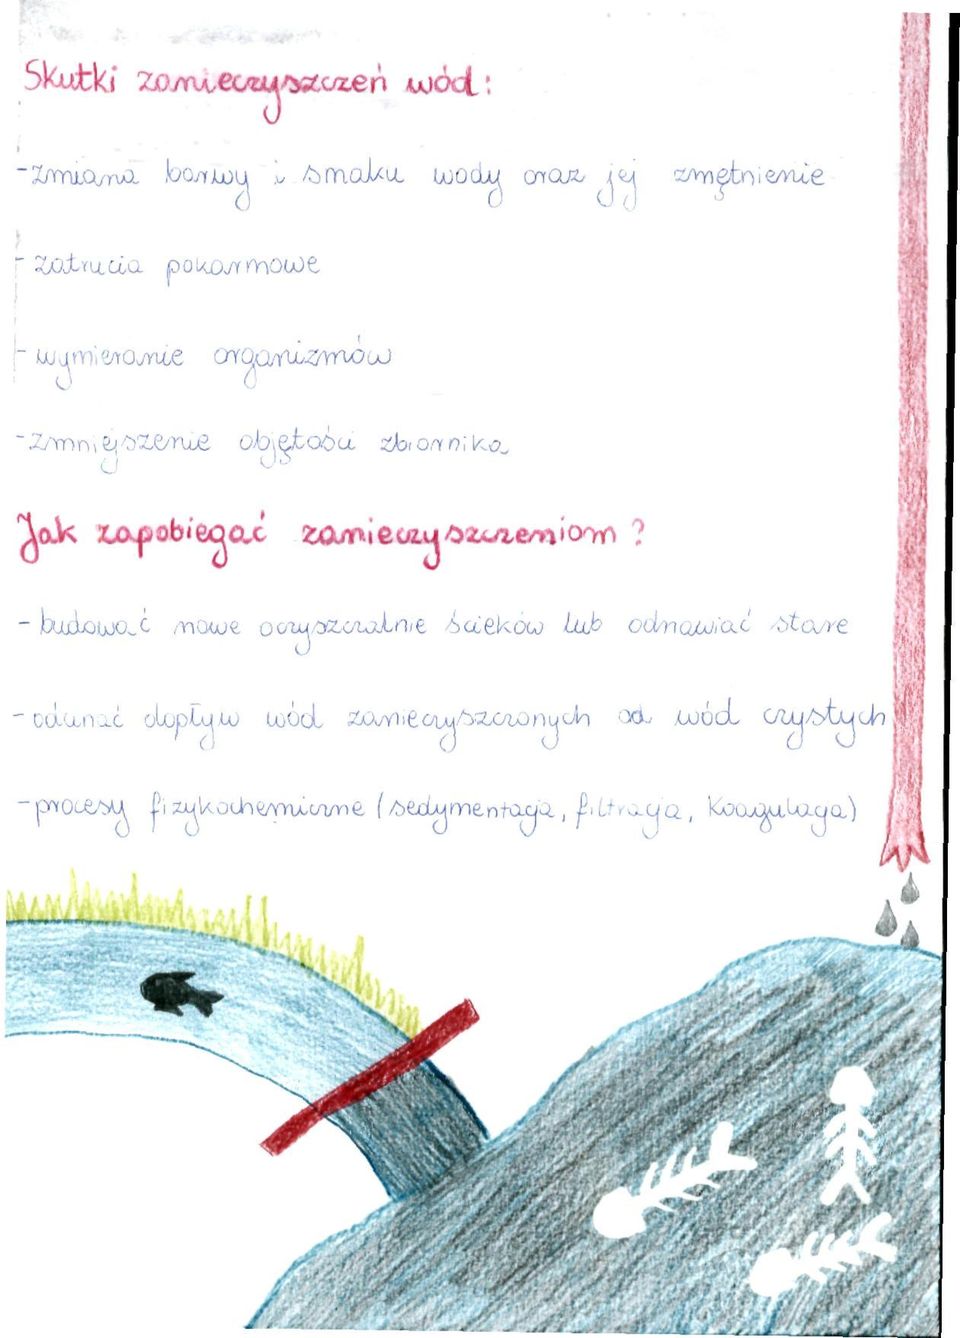 Skutki zanieczyszczeń wód:
-zmiana barwy i smaku wody oraz jej zmętnienie
- zatrucia pokarmowe
- wymieranie organizmów
-zmniejszenie objętości zbiornika
Jak zapobiegać zanieczyszczeniom?
- budować nowe oczyszczalnie ścieków lub odnawiać stare
- odcinać dopływ wód zanieczyszczonych od wód czystych
-procesy fizykochemiczne (sedymentacja, filtracja, koagulacja)